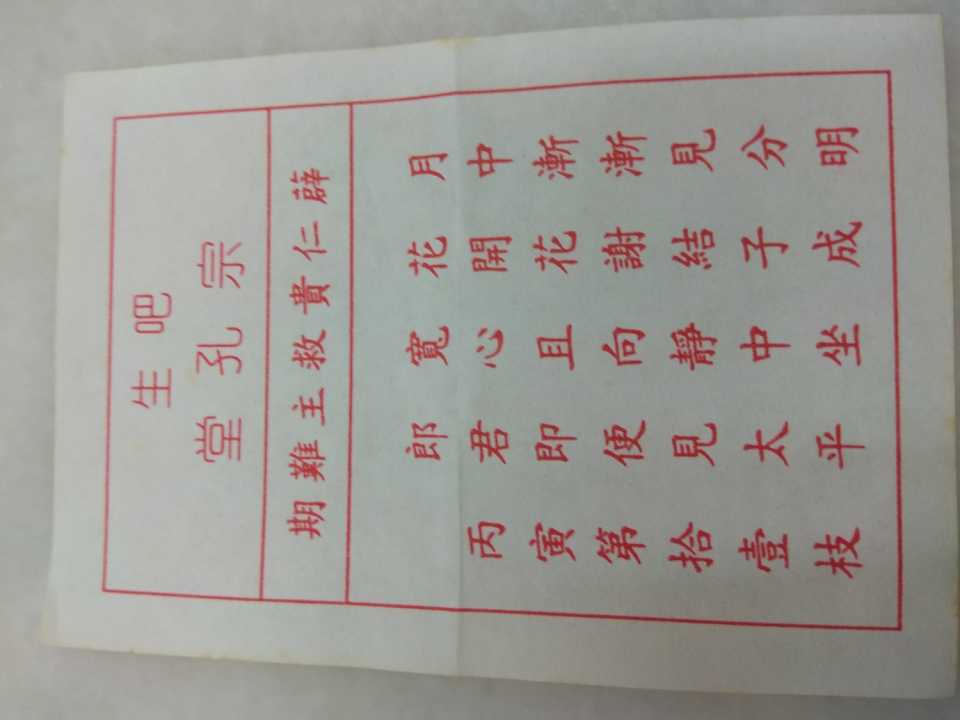 吧生
宗孔堂
薜仁貴救主難期
月中漸漸見分明
花開花謝結子成
寬心且向靜中坐
郎君即便見太平
丙寅第拾壹枝